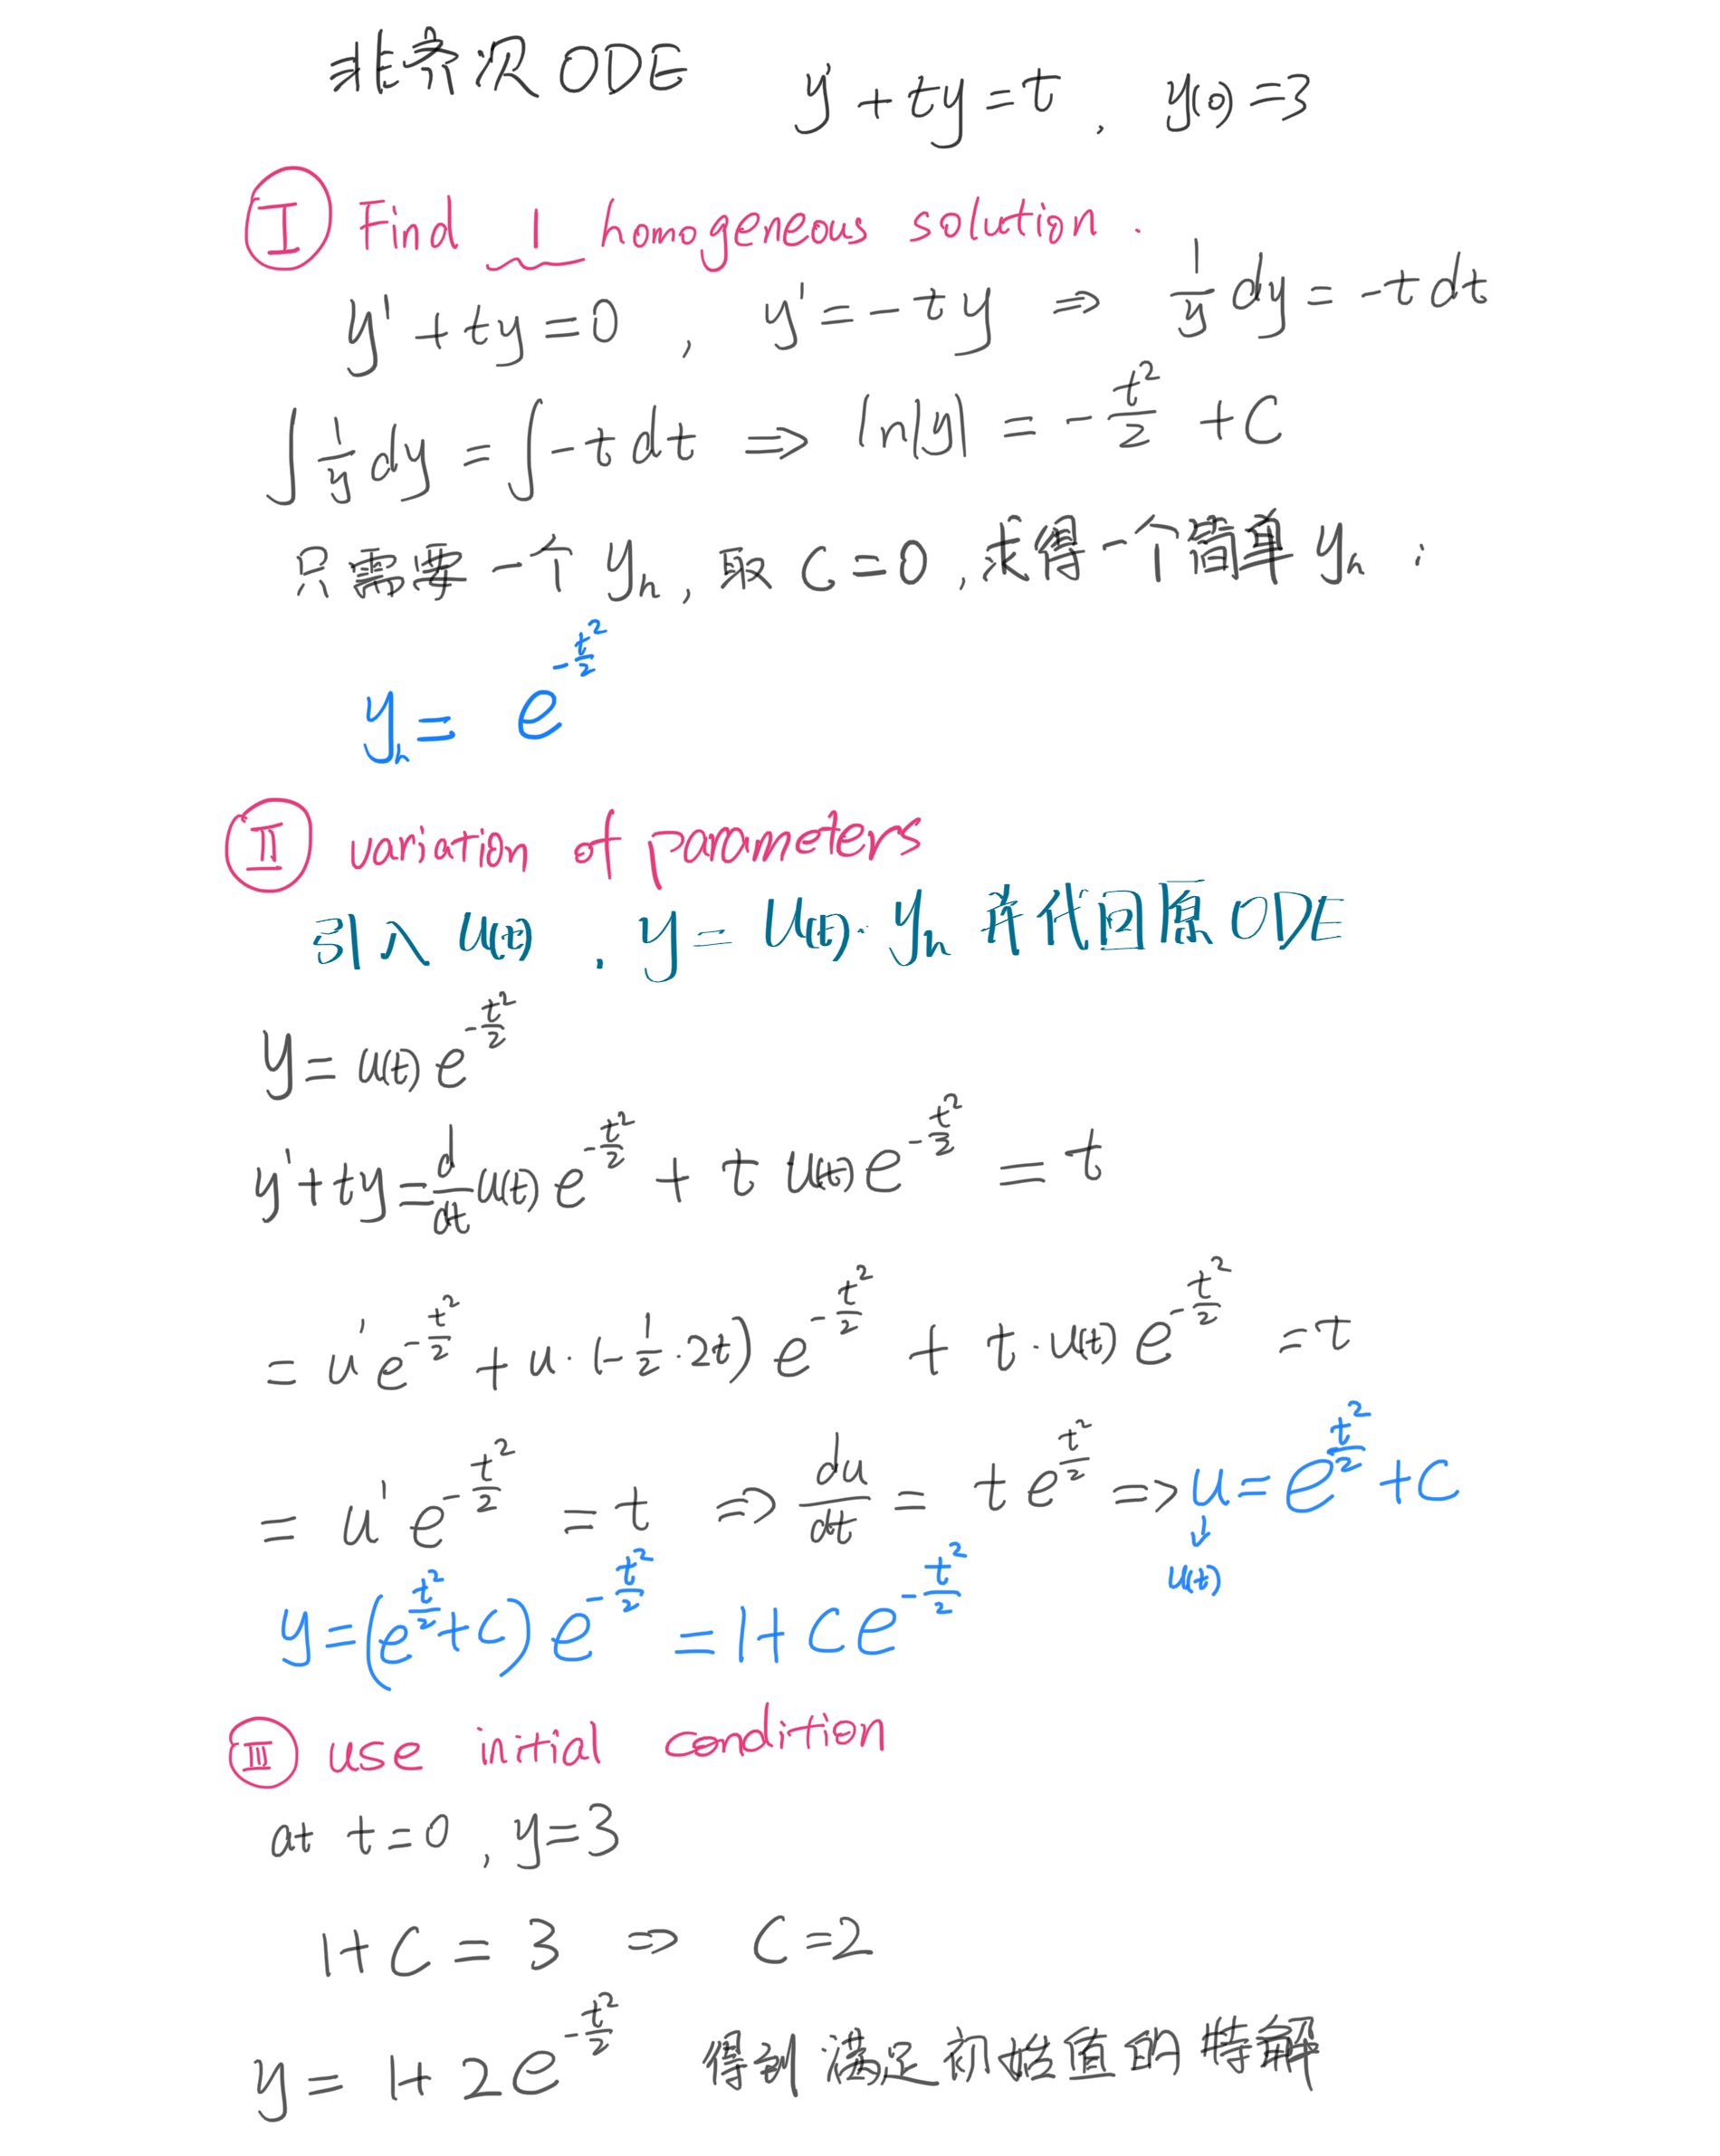 非齐次 ODE y' + ty = t , y(0) = 3
Ⅰ Find 1 homogeneous solution .
y' + ty = 0 , y' = -ty ⇒ 1/y dy = -t dt
∫ 1/y dy = ∫ -t dt ⇒ ln|y| = -t²/2 + C
只需要一个 y_h , 取 C = 0 , 求得一个简单 y_h :
y_h = e^(-t²/2)
Ⅱ variation of parameters
引入 u(t) , y = u(t) · y_h 并代回原 ODE
y = u(t) e^(-t²/2)
y' + ty = d/dt u(t) e^(-t²/2) + t u(t) e^(-t²/2) = t
= u' e^(-t²/2) + u · (-1/2 · 2t) e^(-t²/2) + t · u(t) e^(-t²/2) = t
= u' e^(-t²/2) = t ⇒ du/dt = t e^(t²/2) ⇒ u = e^(t²/2) + C
↓
u(t)
y = (e^(t²/2) + C) e^(-t²/2) = 1 + C e^(-t²/2)
Ⅲ use initial condition
at t = 0 , y = 3
1 + C = 3 ⇒ C = 2
y = 1 + 2e^(-t²/2) 得到满足初始值的特解